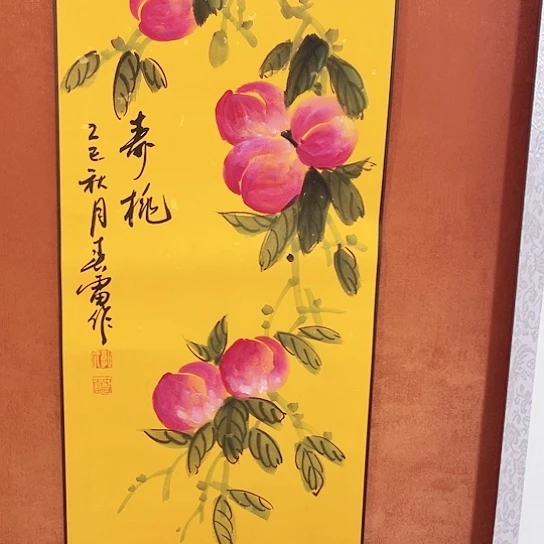 寿桃
乙巳秋月春雷作